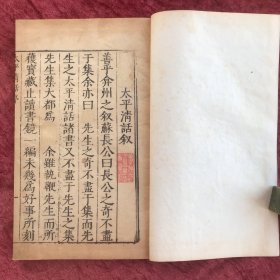 太平清話叙
善乎弇州之叙蘇長公曰長公之奇不盡
于集余亦曰 先生之奇不盡于集而先
生之太平清話諸書又不盡于先生之集
先生集大都爲 余雖執鞭先生而所
穫寳藏止讀書鏡 編未幾爲好事所刻